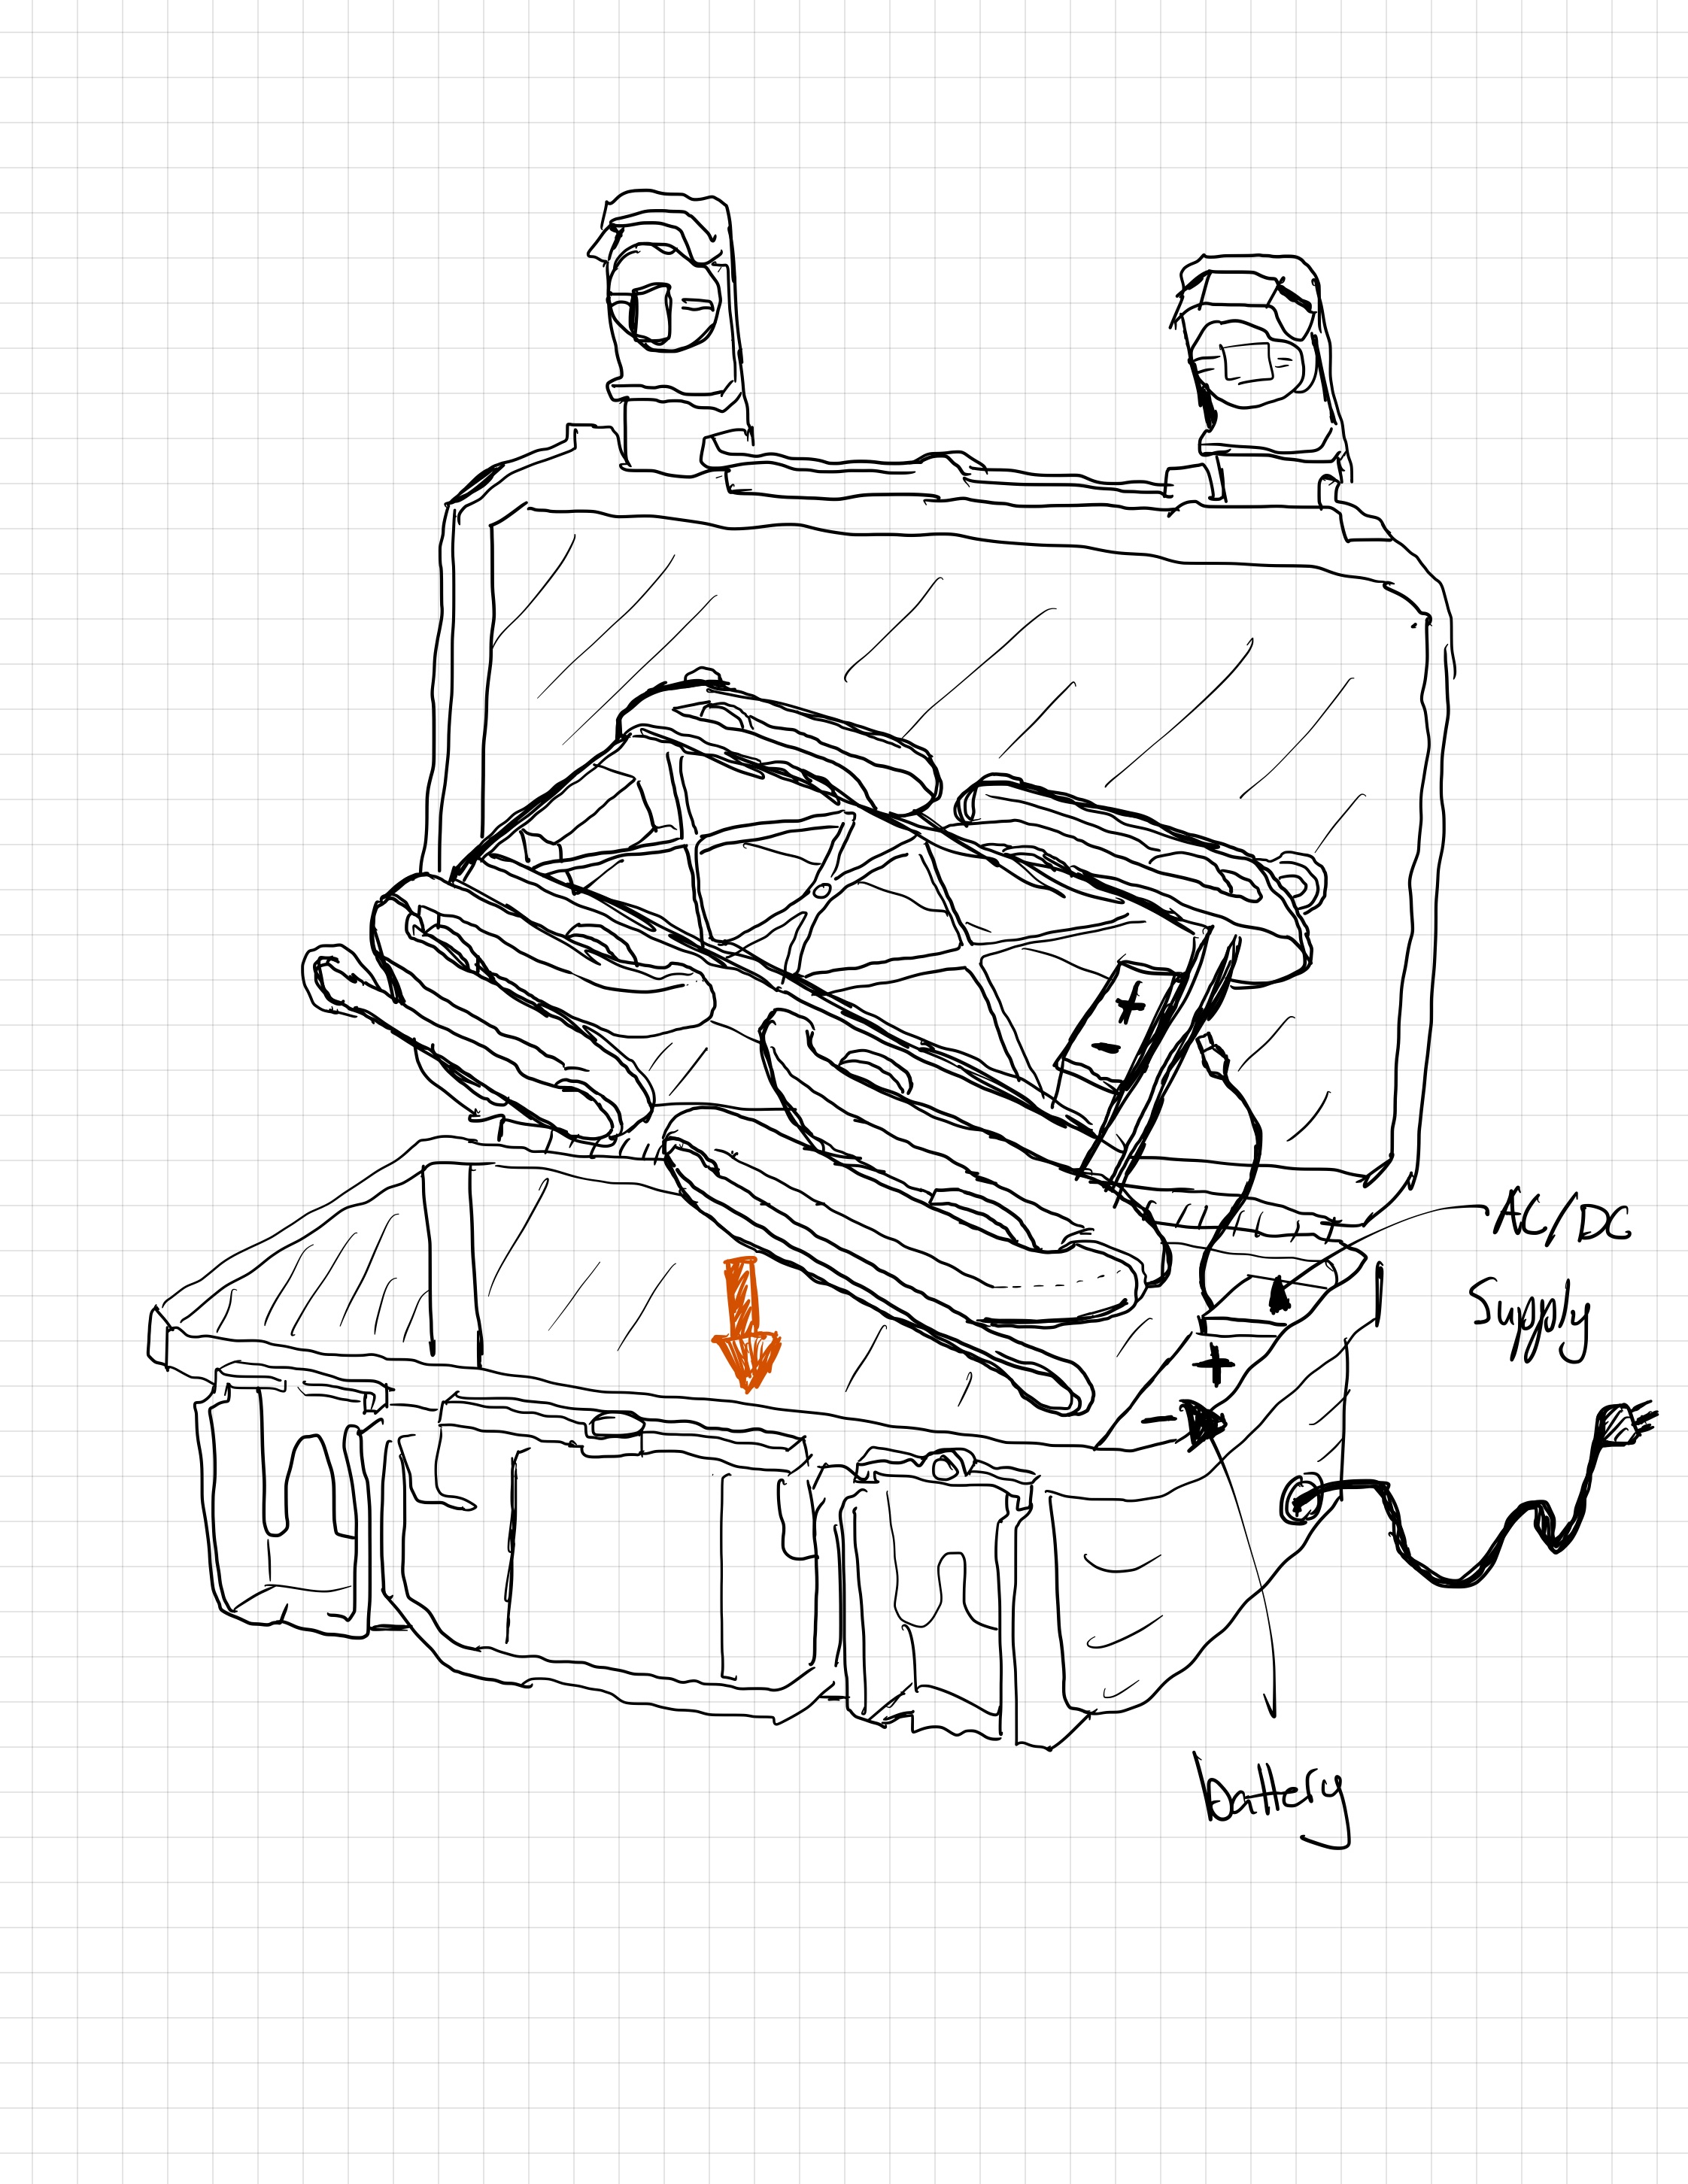 +
-
AC/DC
Supply
+
-
battery